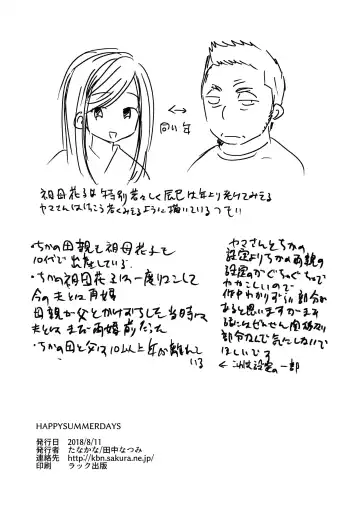 同い年
祖母花子は特別若々しく辰巳は年より老けてみえる
ヤマさんはけっこう若くみえるように描いているつもり
・ちかの母親も祖母花子も
10代で出産している。
・ちかの祖母花子は一度りこんして
今の夫とは再婚
母親が父とかけおちした当時は
夫とはまだ再婚前だった
・ちかの母と父は10以上年が離れて
いる
ヤマさんとちかの
設定よりちかの両親の
設定がぐちゃぐちゃで
ややこしいので
作中わかりずらい部分が
あると思いますがヤマ
ちかにはぜんぜん関係ない
部分なんで気にしないで
ほしいです
設定の一部
HAPPYSUMMERDAYS
発行日 2018/8/11
発行者 たなかな/田中なつみ
連絡先 http://kbn.sakura.ne.jp/
印刷 ラック出版